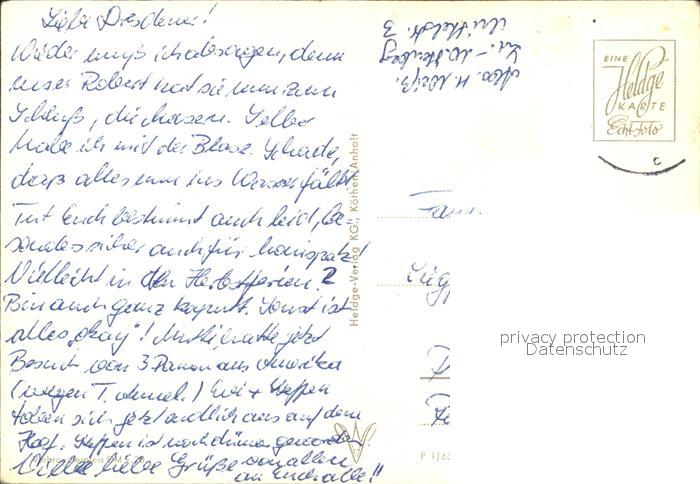 Liebe Dresdener!
Wieder muß ich absagen, denn
unser Robert hat sie nun zum
Schluß, die Masern. Selber
habe ich mit der Blase. Schade,
daß alles nun ins Wasser fällt.
Tut Euch bestimmt auch leid, be-
sonders sicher auch für
Vielleicht in den Herbstferien?
Bin auch ganz kaputt. Sonst ist
alles „okay"! Mutti hatte jetzt
Besuch von 3 Damen aus Amerika
(wegen T. ) Evi + Steffen
toben sich jetzt endlich aus auf dem
Hof. Steffen ist noch dünner geworden.
Viele liebe Grüße von allen
an Euch alle!!
Abs. H. Weiß
Wittenberg
3
EINE
Heldge
KARTE
Echt-Foto
Heldge-Verlag KG., Köthen/Anhalt
Fam.
privacy protection
Datenschutz
P 1/63